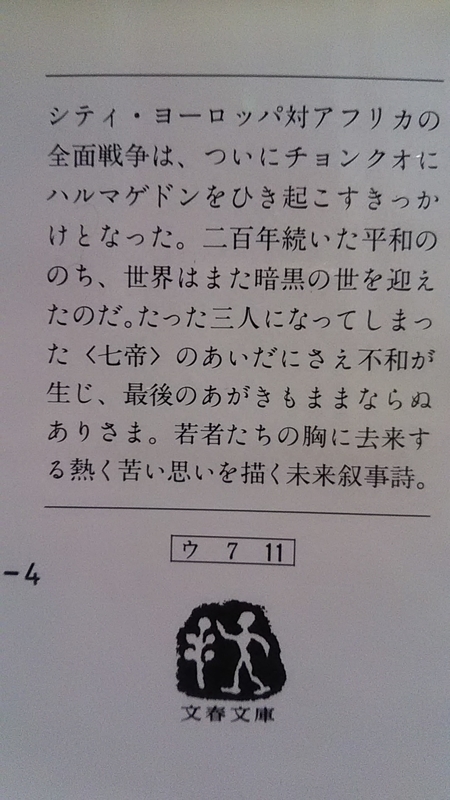 シティ・ヨーロッパ対アフリカの
全面戦争は、ついにチョンクオに
ハルマゲドンをひき起こすきっか
けとなった。二百年続いた平和の
のち、世界はまた暗黒の世を迎え
たのだ。たった三人になってしまっ
た〈七帝〉のあいだにさえ不和が
生じ、最後のあがきもままならぬ
ありさま。若者たちの胸に去来す
る熱く苦い思いを描く未来叙事詩。
ウ 7 11
-4
文春文庫